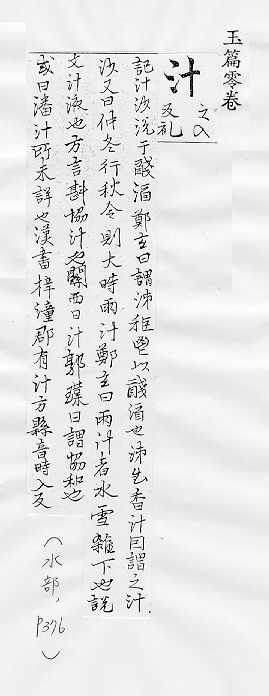 玉篇零卷
汁 之入反礼
記汁沙涚于醆酒鄭玄曰謂沛秬鬯以醆酒也沛生香汁因謂之汁
沙又曰仲冬行秋令則大時雨汁鄭玄曰雨汁者水雪雜下也說
文汁液也方言斟協汁也關西曰汁郭璞曰謂協和也
或曰潘汁所未詳也漢書梓潼郡有汁方縣音時入反
(水部, P376)